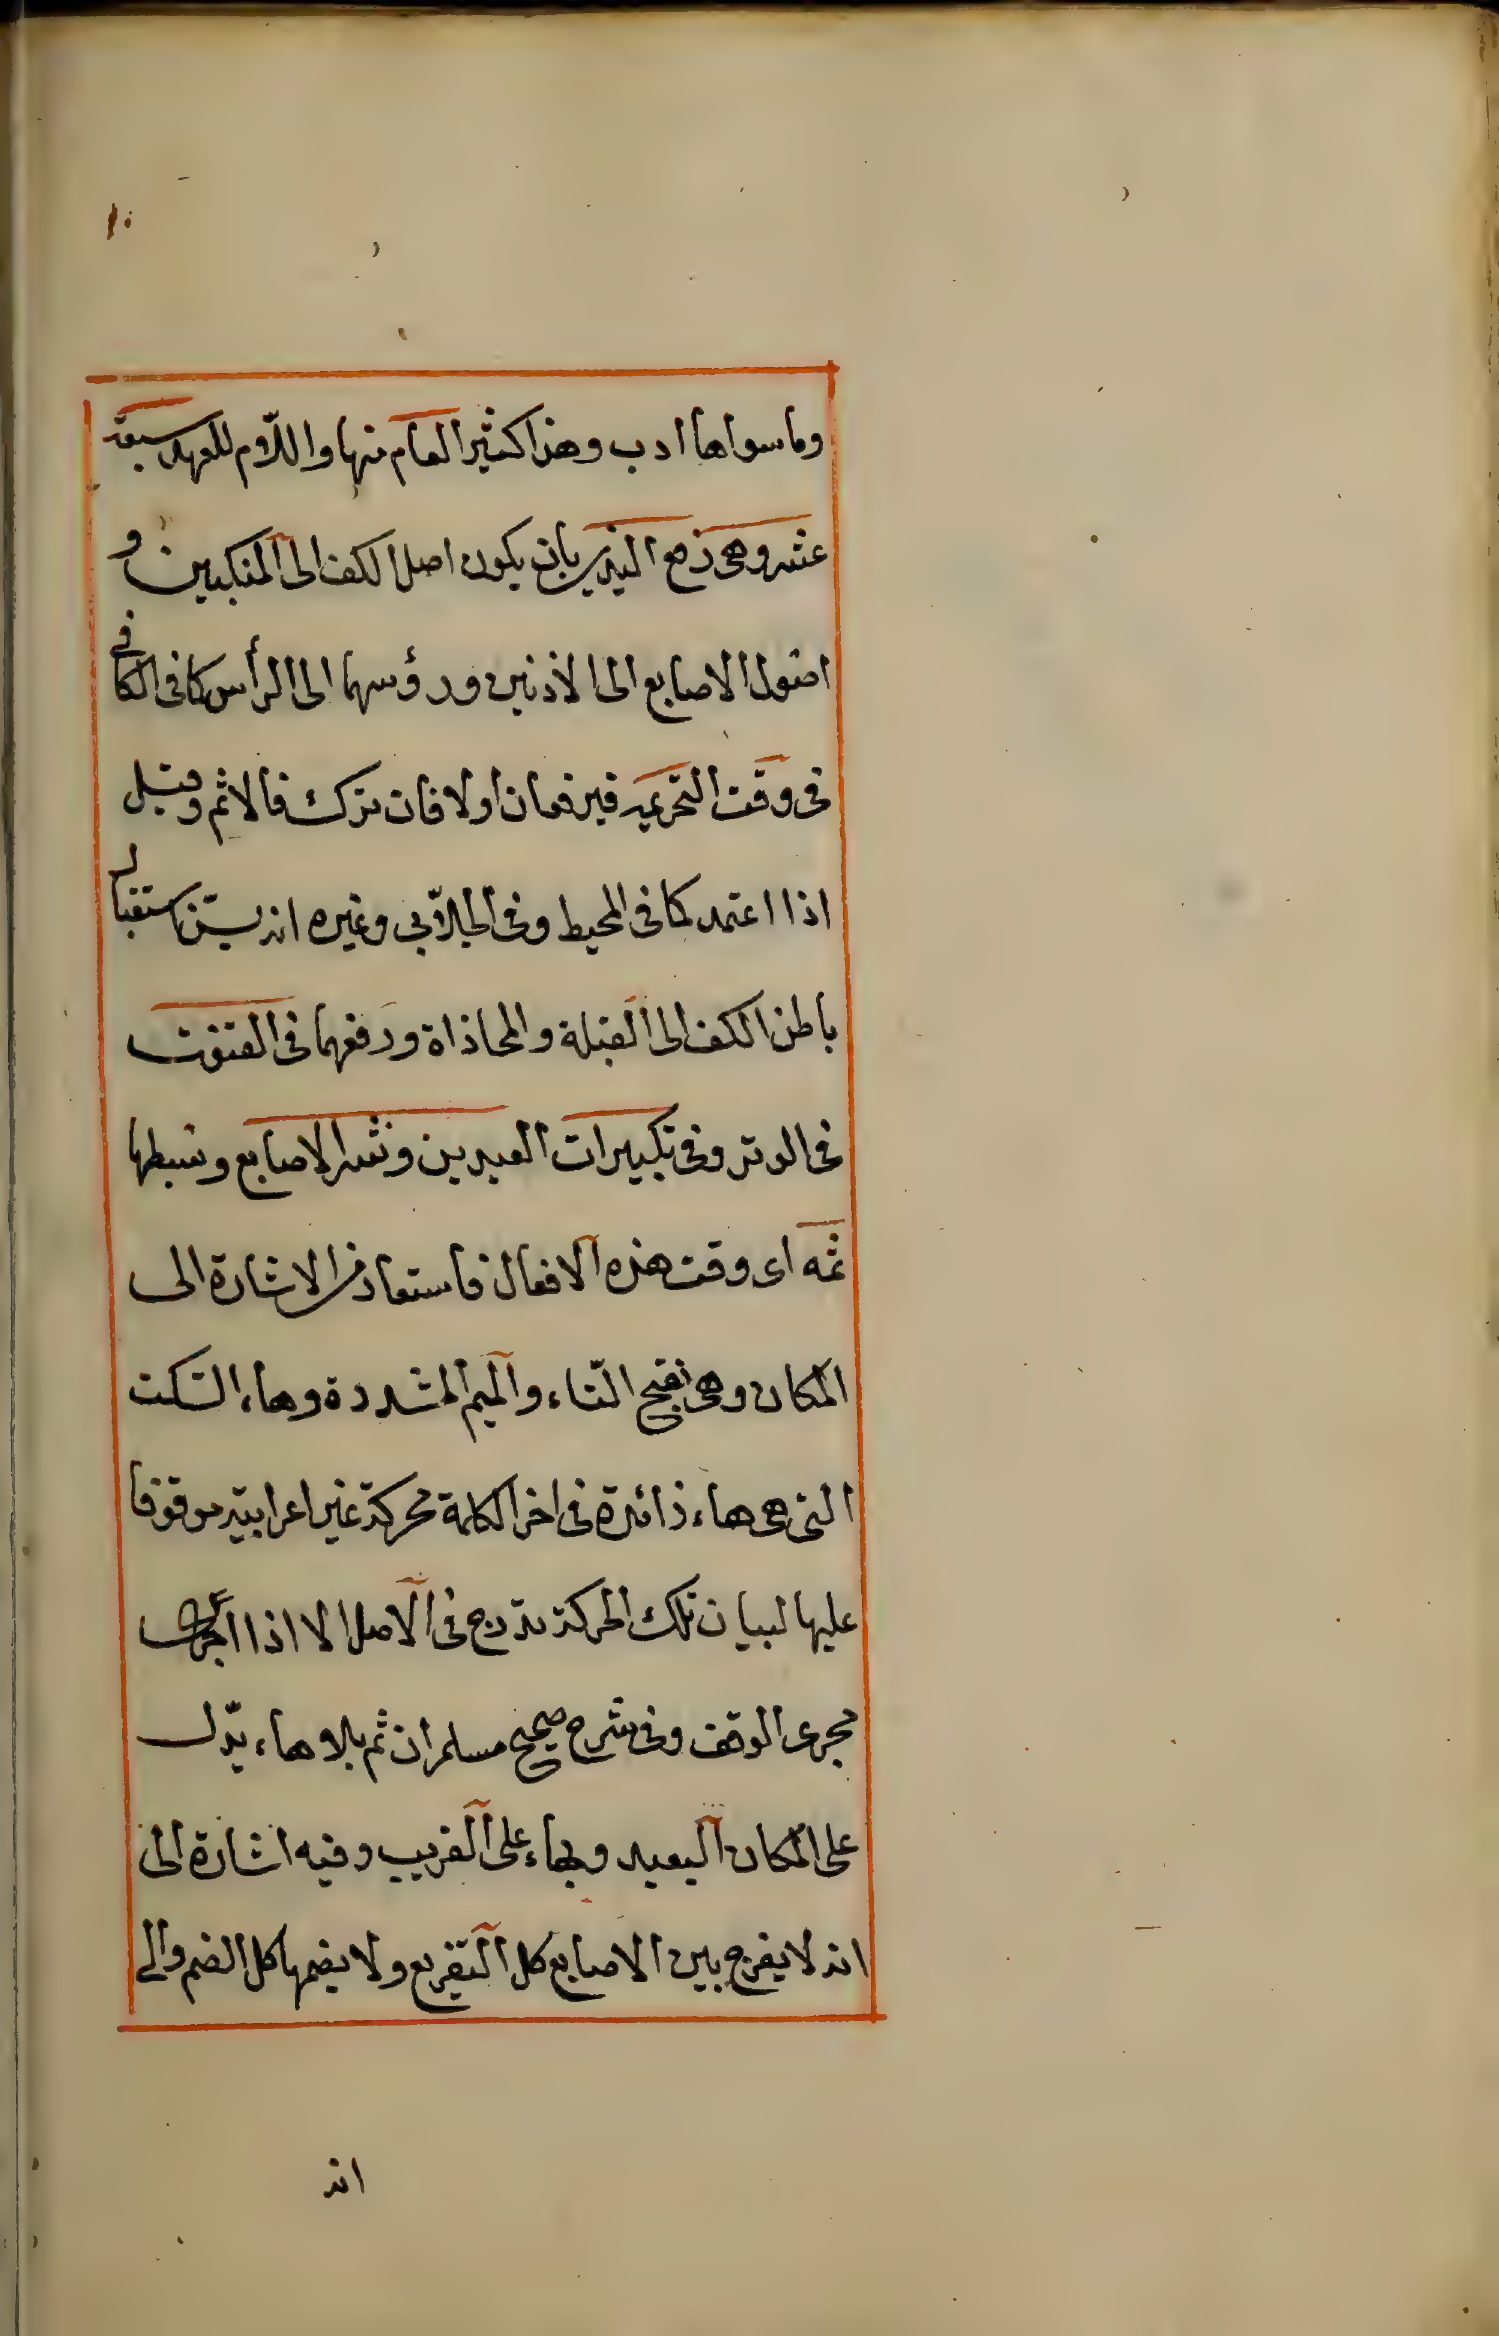 ١٠
وما سواها ادب وهذا كثير العام منها واللّام للعهد سبعة
عشر وهى رفع اليدين بان يكون اصل الكف الى المنكبين و
اصول الاصابع الى الأذنين ورؤسهما الى الرأس كما فى الكافى
فى وقت التحريمة فيرفعان اولا فان ترك فالاثم وقيل
اذا اعتمد كما فى المحيط وفى الجلّابى وغيره انه يسنّ استقبال
باطن الكف الى القبلة والمحاذاة ورفعهما فى القنوت
فى الوتر وفى تكبيرات العيدين ونشر الاصابع وبسطها
ثمه اى وقت هذه الافعال فاستعار من الاشارة الى
المكان وهى بفتح الثاء والميم المشددة وهاء السّكت
التى هى هاء زائدة فى اخر الكلمة محركة غير اعرابية موقوفا
عليها لبيان تلك الحركة تدرج فى الاصل الا اذا اجرى
مجرى الوقف وفى شرح صحيح مسلم ان ثم بلا هاء يدّل
على المكان البعيد وبهاء على القريب وفيه اشارة الى
انه لا يفرج بين الاصابع كل التفريج ولا يضمها كل الضم والى
انه